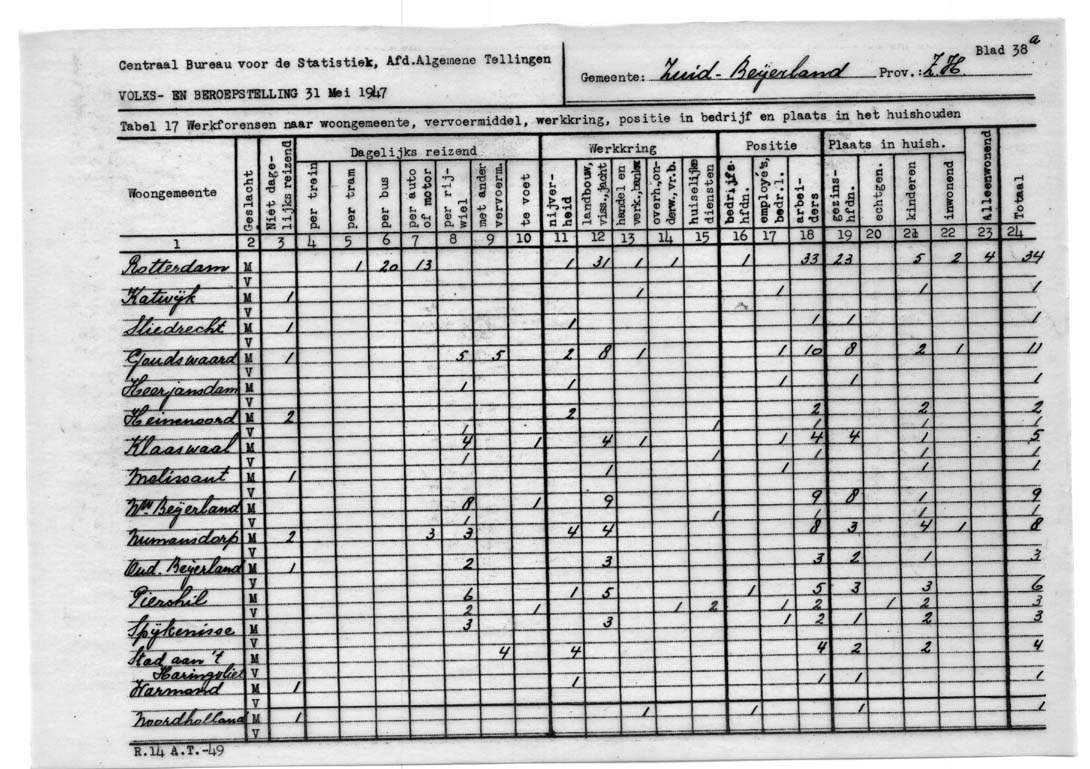 Blad 38a
Centraal Bureau voor de Statistiek, Afd.Algemene Tellingen
Gemeente: Zuid-Beijerland Prov.: Z.H.
VOLKS- EN BEROEPSTELLING 31 Mei 1947
Tabel 17 Werkforensen naar woongemeente, vervoermiddel, werkkring, positie in bedrijf en plaats in het huishouden
Woongemeente Geslacht Niet dage-lijks reizend Dagelijks reizend Werkkring Positie Plaats in huish. Alleenwonend Totaal
per trein per tram per bus per auto of motor per rij-wiel met ander vervoerm. te voet nijver-heid landbouw, viss.,jacht handel en verk.,bankw. overh.,on-derw.,vr.b. huiselijke diensten bedrijfs-hfdn. employé's, bedr.l. arbei-ders gezins-hfdn. echtgen. kinderen inwonend
1 2 3 4 5 6 7 8 9 10 11 12 13 14 15 16 17 18 19 20 21 22 23 24
Rotterdam M 1 20 13 1 31 1 1 1 33 23 5 2 4 34
V
Katwijk M 1 1 1 1 1
V
Sliedrecht M 1 1 1 1 1
V
Goudswaard M 1 5 5 2 8 1 1 10 8 2 1 11
V
Heerjansdam M 1 1 1 1 1
V
Heinenoord M 2 2 2 2 2
V 1 1 1 1 1
Klaaswaal M 4 1 4 1 1 4 4 1 5
V 1 1 1 1 1
Melissant M 1 1 1 1 1
V
Nw. Beijerland M 8 1 9 9 8 1 9
V 1 1 1 1 1
Numansdorp M 2 3 3 4 4 8 3 4 1 8
V
Oud-Beijerland M 1 2 3 3 2 1 3
V
Piershil M 6 1 5 1 5 3 3 6
V 2 1 1 2 1 2 1 2 3
Spijkenisse M 3 3 1 2 1 2 3
V
Stad aan 't M 4 4 4 2 2 4
Haringvliet V
Warmond M 1 1 1 1 1
V
Noordholland M 1 1 1 1 1
V
R.14 A.T.-49